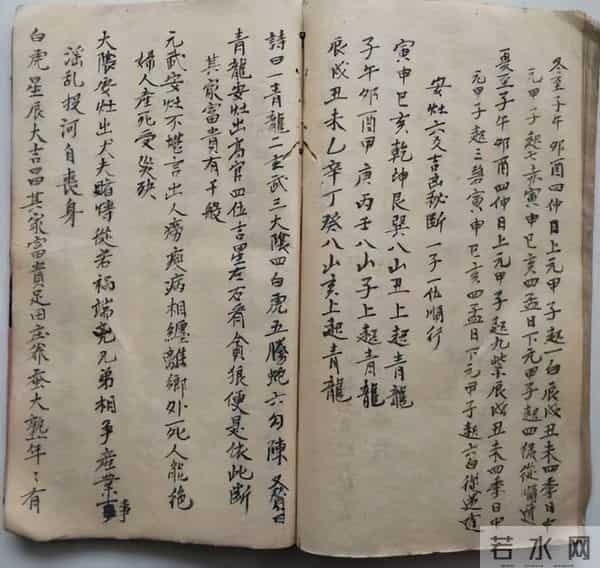 冬至子午卯酉四仲日上元甲子起一白辰戌丑未四季日中
元甲子起七赤寅申巳亥四孟日下元甲子起四綠從順逆
夏至子午卯酉四仲日上元甲子起九紫辰戌丑未四季日中
元甲子起三碧寅申巳亥四孟日下元甲子起六白徐逆逆
安灶六爻吉凶秘斷一子一位順行
寅申巳亥乾坤艮巽八山丑上起青龍
子午卯酉甲庚丙壬八山子上起青龍
辰戌丑未乙辛丁癸八山亥上起青龍
詩曰一青龍二玄武三大陰四白虎五騰蛇六勾陳
青龍安灶出高官四位吉星左右看貪狼便是依此斷
其家富貴有千般
元武安灶不堪言出人癆疾病相纏離鄉外死人能絶
婦人產死受災殃
大陰安灶出犬夫賭慱從若禍端兄弟相爭産業事
淫乱投河自喪身
白虎星辰大吉昌其家富貴足田庄养蚕大熟年々有
若水网